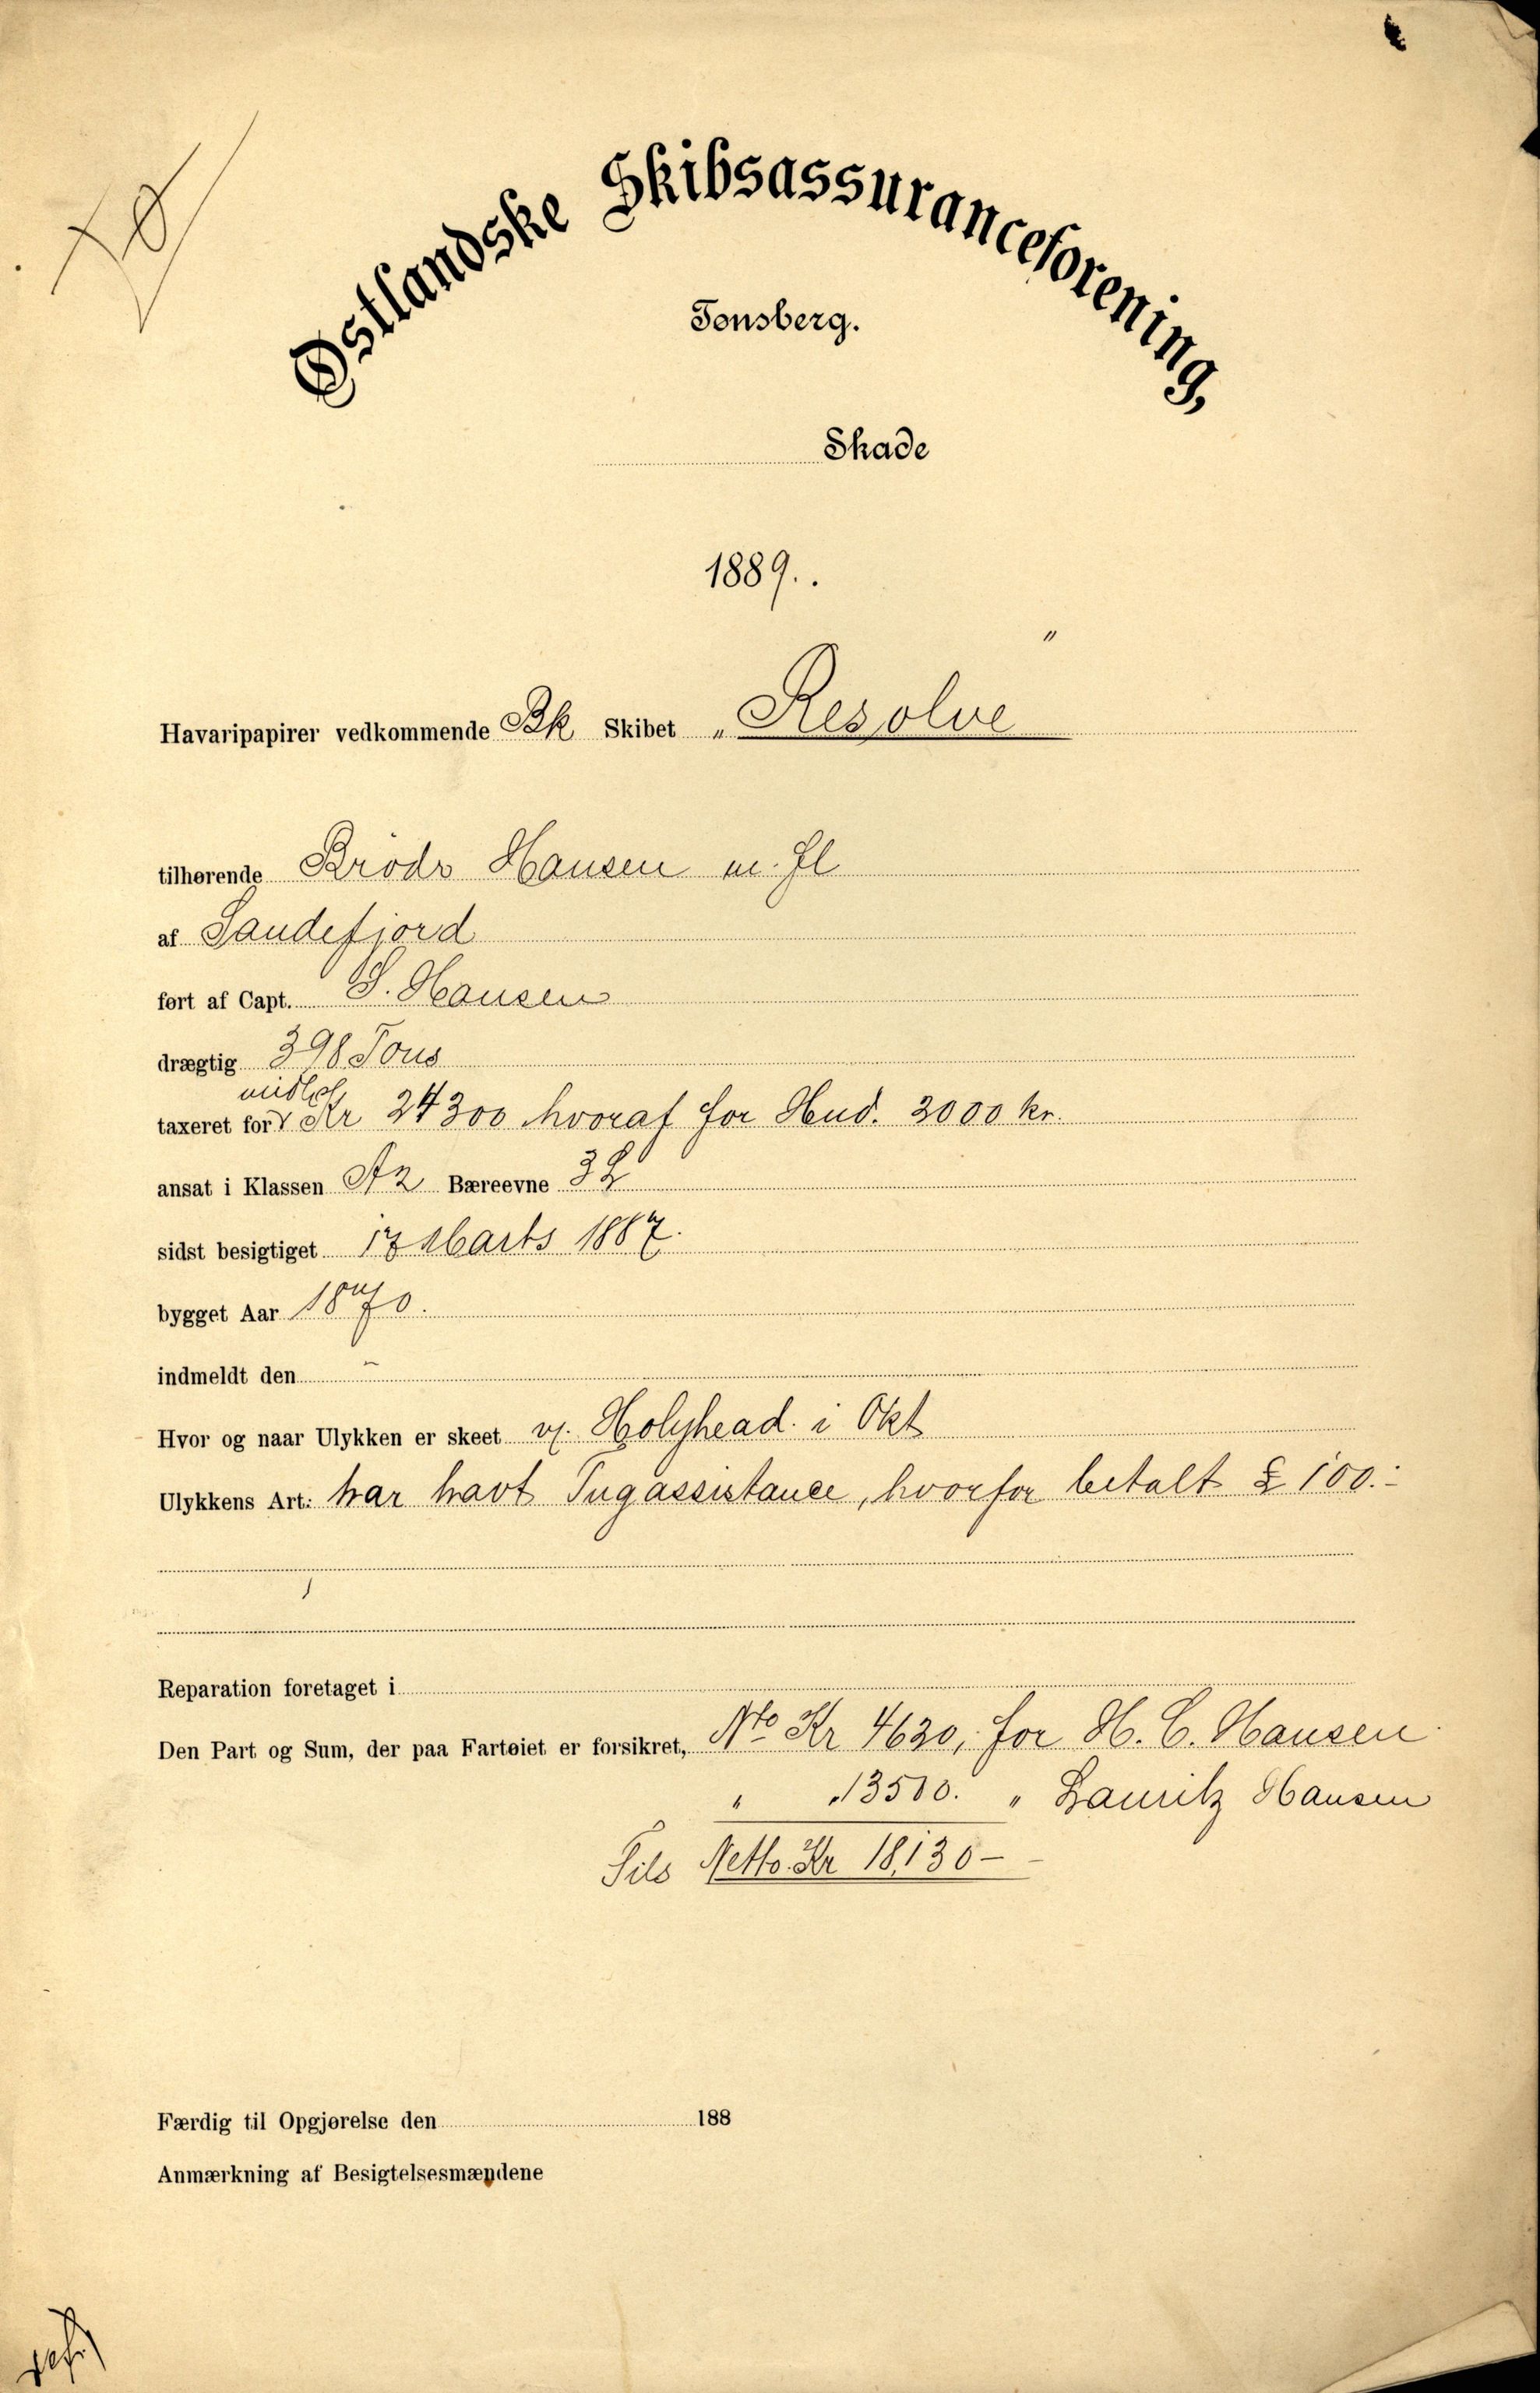 Østlandske Skibsassuranceforening,
Tønsberg.
Skade
1889.
Havaripapirer vedkommende Bk Skibet „Resolve"
tilhørende Brödr Hansen m. fl
af Sandefjord
ført af Capt. S. Hansen
drægtig 398 Tons
taxeret for Kr 24300 hvoraf for Hud. 2000 kr.
ansat i Klassen A2 Bæreevne
sidst besigtiget 17 Marts 1887.
bygget Aar 1870.
indmeldt den
Hvor og naar Ulykken er skeet v/ Holyhead i Okt
Ulykkens Art: har havt Tugassistance, hvorfor betalt £ 100.-
Reparation foretaget i
Den Part og Sum, der paa Fartøiet er forsikret, Nto Kr 4630, for H. C. Hansen
" " 13500. " Lauritz Hansen
Tils Netto Kr 18,130 -
Færdig til Opgjørelse den 188
Anmærkning af Besigtelsesmændene